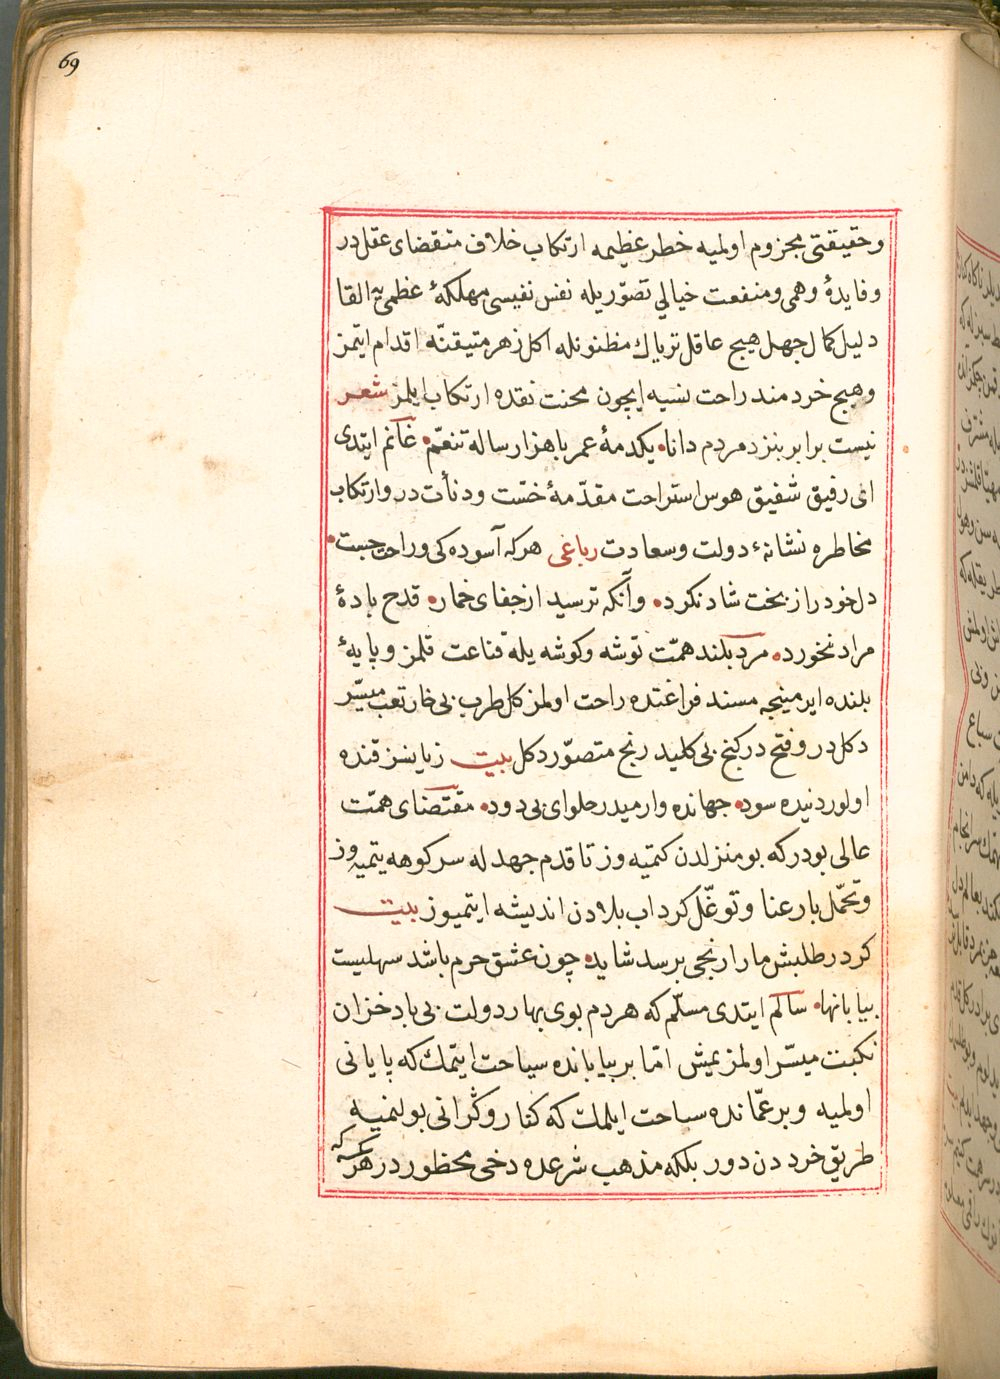 69
و حقیقتی مجزوم اولمیه خطر عظیمه ارتکاب خلاف متقضای عقل در
و فایدهٔ وهمی و منفعت خیالی تصوّریله نفس نفیسی مهلکهٔ عظمی یه القا
دلیل کمال جهل هیچ عاقل تریاك مظنونله اکل زهر متیقنّه اقدام ایتمز
و هیچ خردمند راحت نسیه ایچون محنت نقده ارتکاب ایلمز شعر
نیست برابر بنزد مردم دانا • یکدمهٔ عمر با هزار ساله تنعّم • غانم ایتدی
ای رفیق شفیق هوس استراحت مقدّمهٔ خسّت و دنأت در و ارتکاب
مخاطره نشانهٔ دولت و سعادت رباعی هر که آسوده کی و راحت جست •
دل خود را ز بخت شاد نکرد • وآنکه ترسید از جفای خمار • قدح بادهٔ
مراد نخورد • مرد بلند همّت توشه و کوشه یله قناعت قلمز و پایهٔ
بلنده ایرمینجه مسند فراغتده راحت اولمز کل طرب بی خار تعب میسّر
دکلدر و فتح در کنج بی کلید رنج متصوّر دکل بیت زیانسز قنده
اولور دنیده سود • جهانده وارمیدر حلوای بی دود • مقتضای همّت
عالی بودر که بو منزلدن کتمیه وز تا قدم جهد له سر کوهه یتمیه وز
و تحمّل بار عنا و توغّل کرداب بلادن اندیشه ایتمیوز بیت
کر در طلبش ما را رنجی برسد شاید • چون عشق حرم باشد سهلیست
بیابانها • سالم ایتدی مسلّم که هر دم بوی بهار دولت بی باد خزان
نکبت میسّر اولمز یمش امّا بر بیابانده سیاحت ایتمك که پایانی
اولمیه و بر عمّانده سباحت ایلمك که کنار و کرانی بولنمیه
طریق خرددن دور بلکه مذهب شرعده دخی محظور در هر کسه که